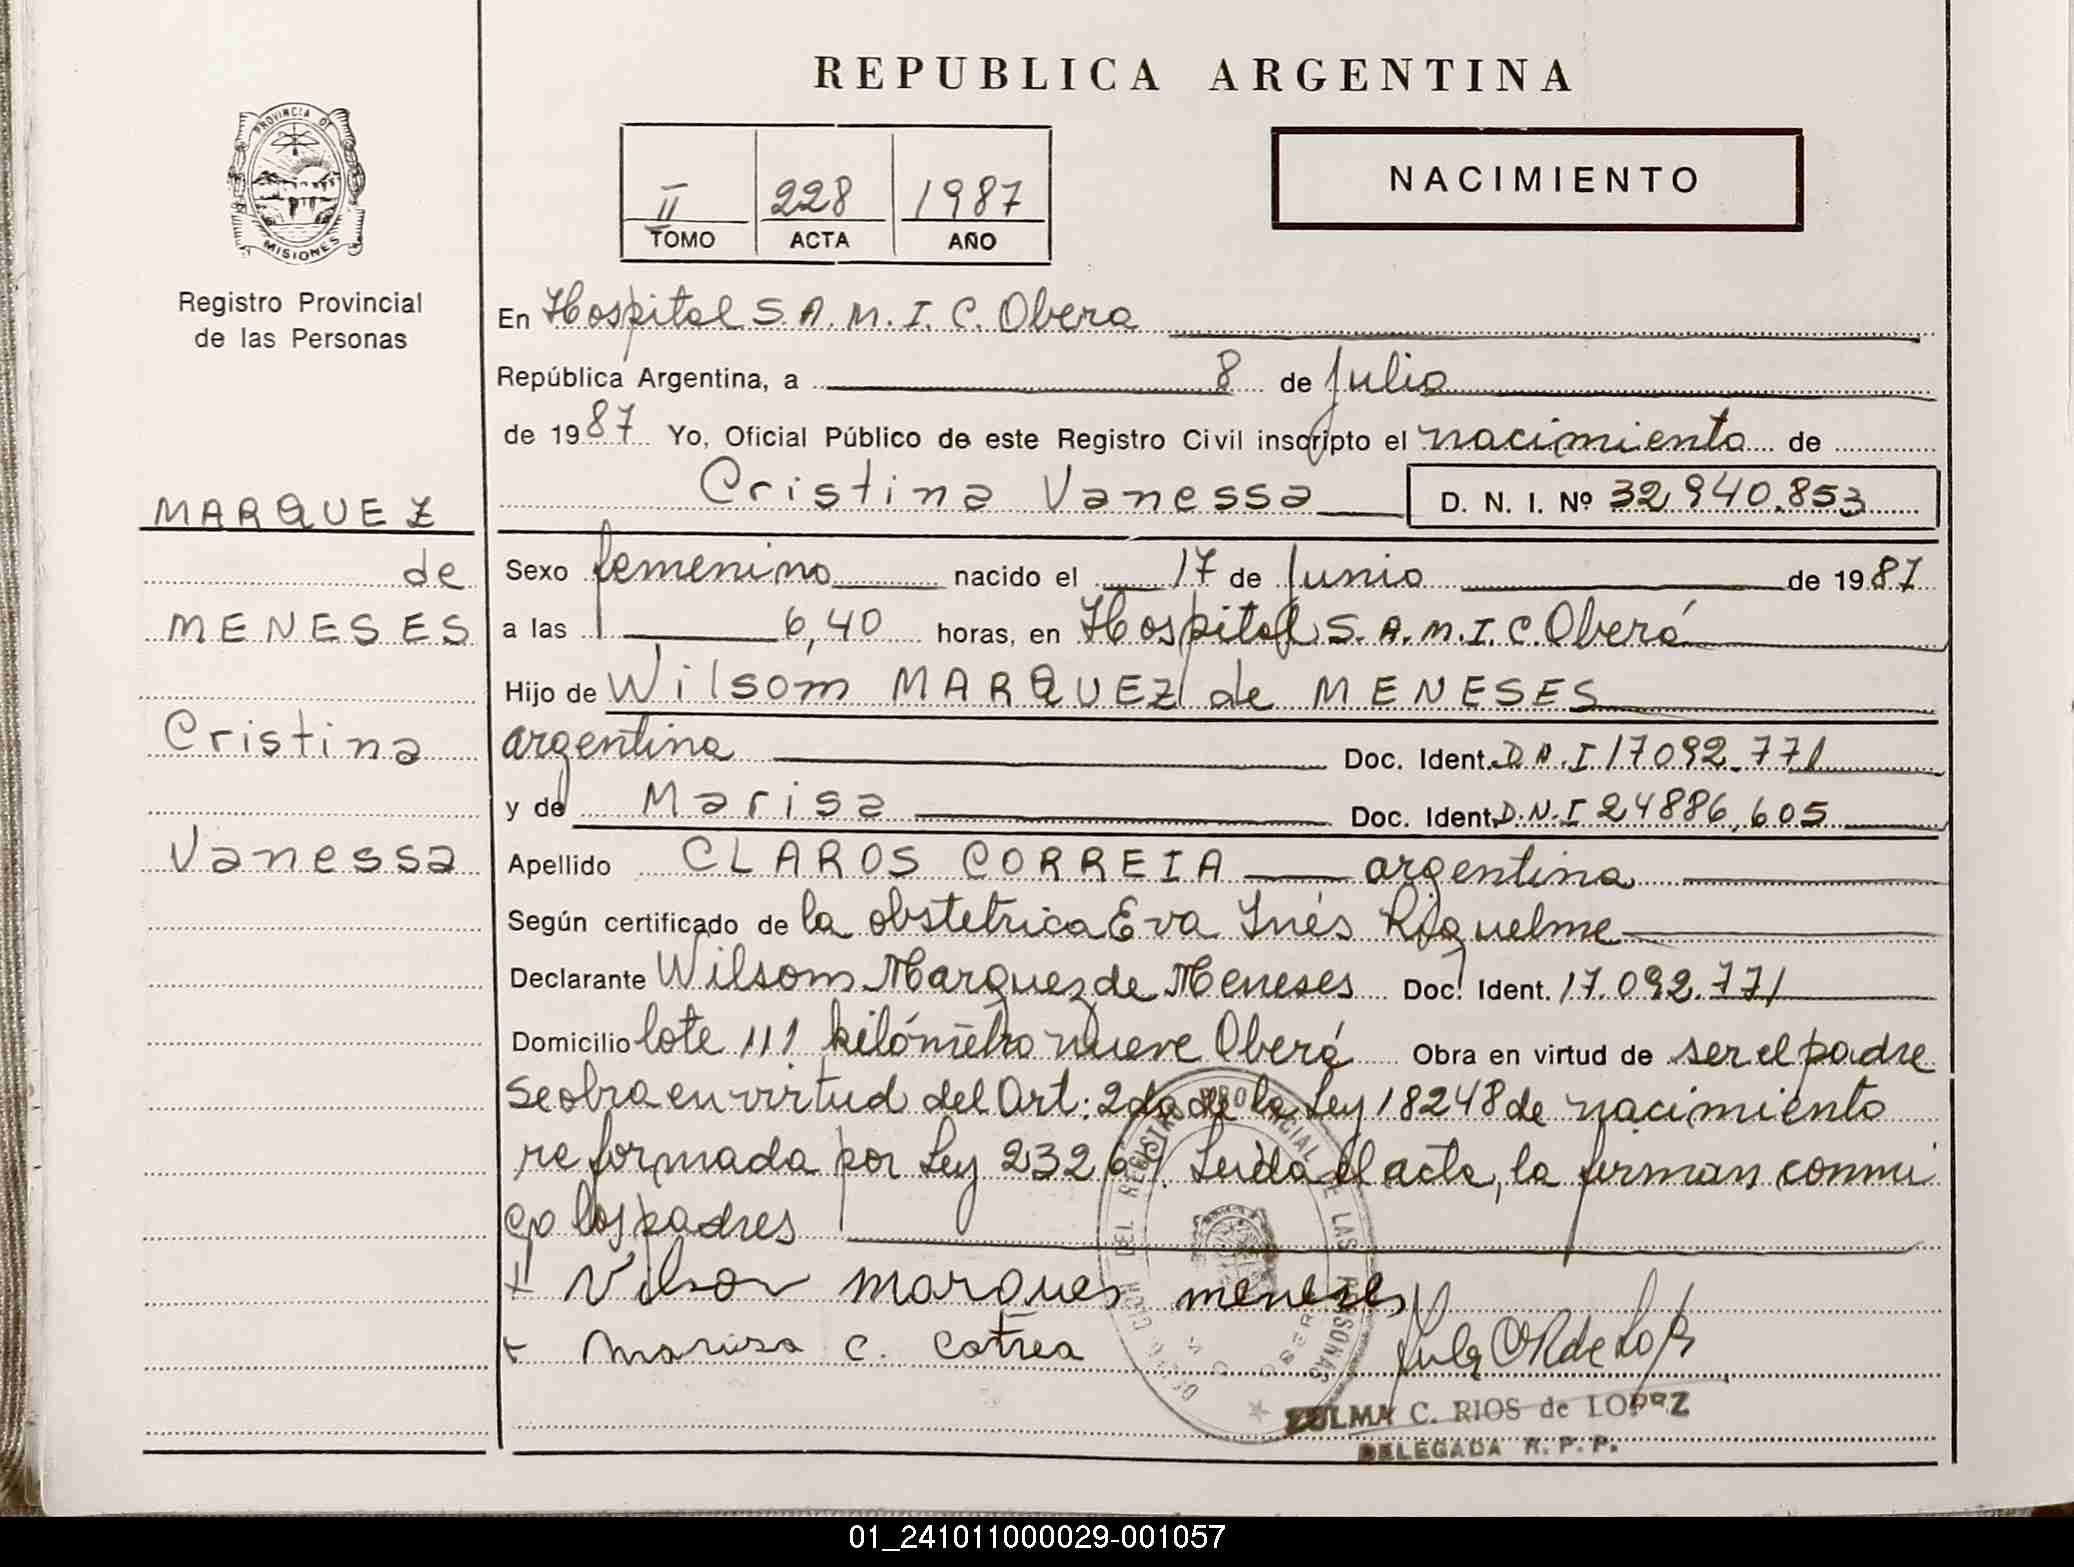 REPUBLICA ARGENTINA
PROVINCIA DE
MISIONES
Registro Provincial
de las Personas
II 228 1987
TOMO ACTA AÑO
NACIMIENTO
En Hospital S.A.M.I.C. Obera
República Argentina, a 8 de Julio
de 1987 Yo, Oficial Público de este Registro Civil inscripto el nacimiento de
Cristina Vanessa D. N. I. Nº 32.940.853
MARQUEZ
de
MENESES
Cristina
Vanessa
Sexo femenino nacido el 17 de Junio de 1987
a las 6,40 horas, en Hospital S.A.M.I.C. Oberá
Hijo de Wilsom MARQUEZ de MENESES
argentina Doc. Ident. D.N.I 17092.771
y de Marisa Doc. Ident. D.N.I 24886.605
Apellido CLAROS CORREIA argentina
Según certificado de la obstetrica Eva Inés Riquelme
Declarante Wilsom Marquez de Meneses Doc. Ident. 17.092.771
Domicilio lote 111 kilómetro nueve Oberá Obra en virtud de ser el padre
Se obra en virtud del Art: 2do de la Ley 18248 de nacimiento
reformada por Ley 23264. Leida el acta, la firman conmi
go los padres
+ Vilson marques meneses
+ Marisa C. Correa
DEL REGISTRO PROVINCIAL DE LAS PERSONAS
ZULMA C. RIOS de LOPEZ
DELEGADA R. P. P.
01_241011000029-001057